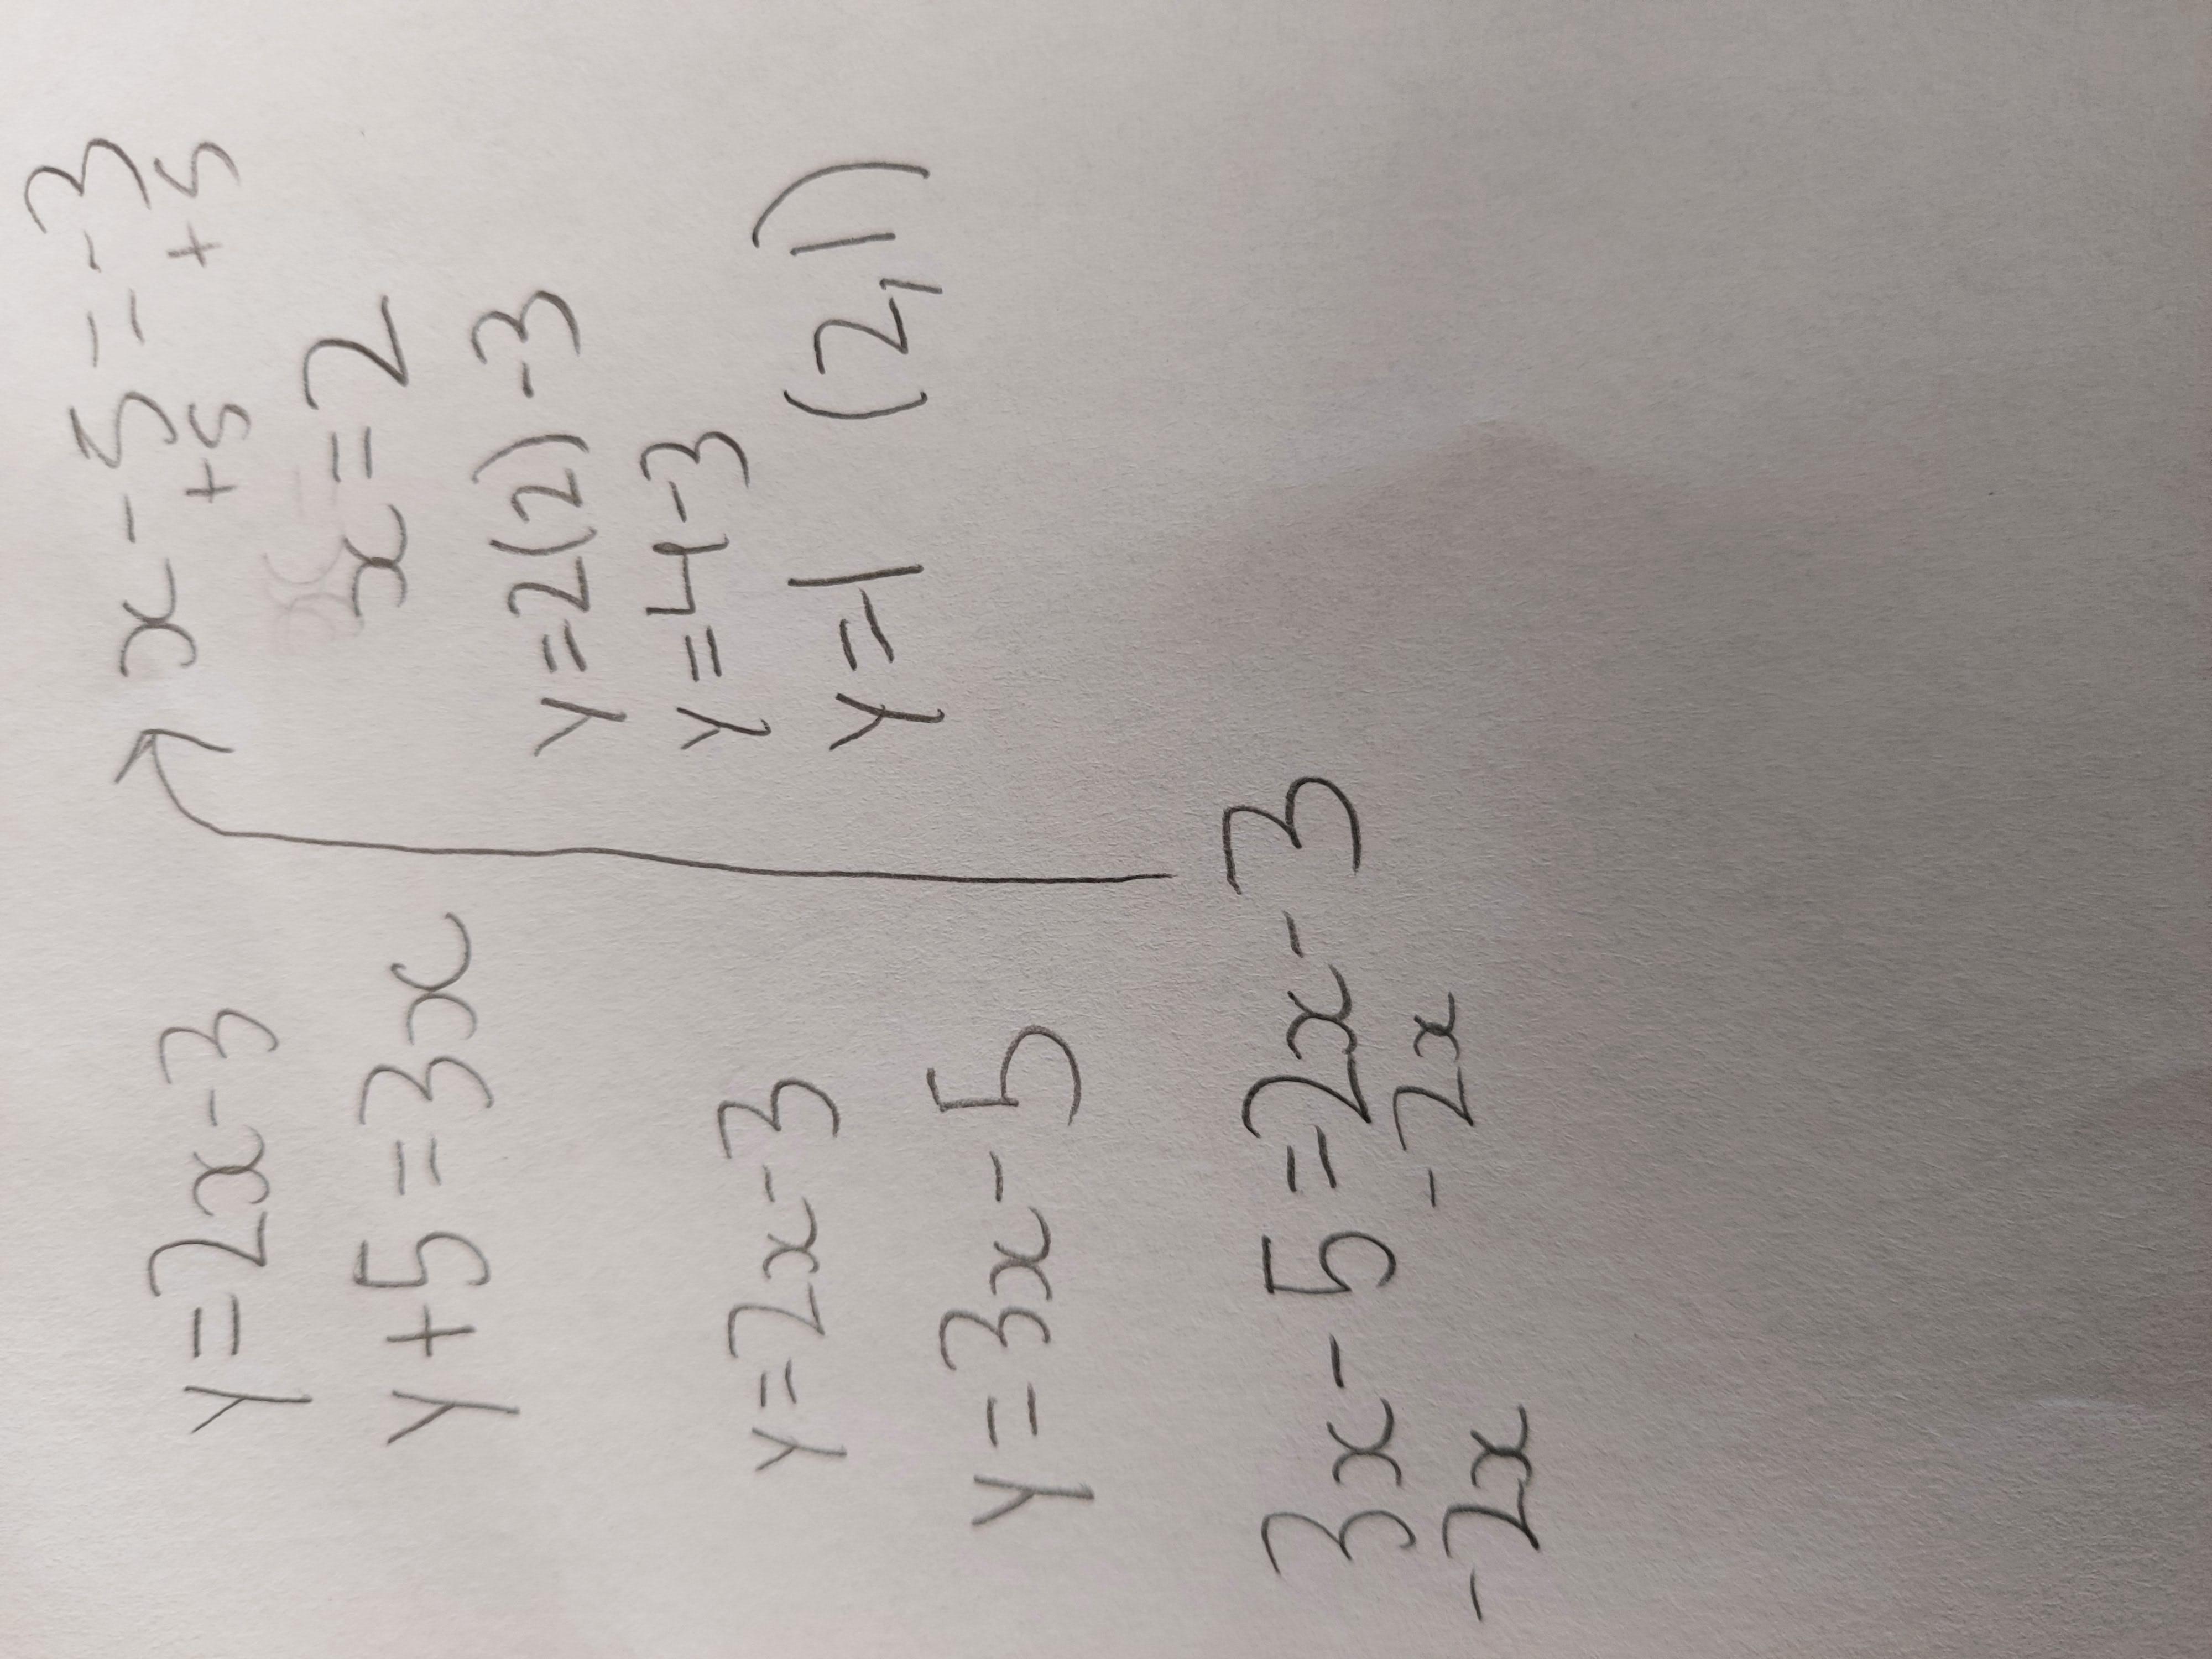 y=2x-3
y+5=3x
y=2x-3
y=3x-5
3x-5=2x-3
-2x -2x
x-5=-3
+5 +5
x=2
y=2(2)-3
y=4-3
y=1 (2,1)